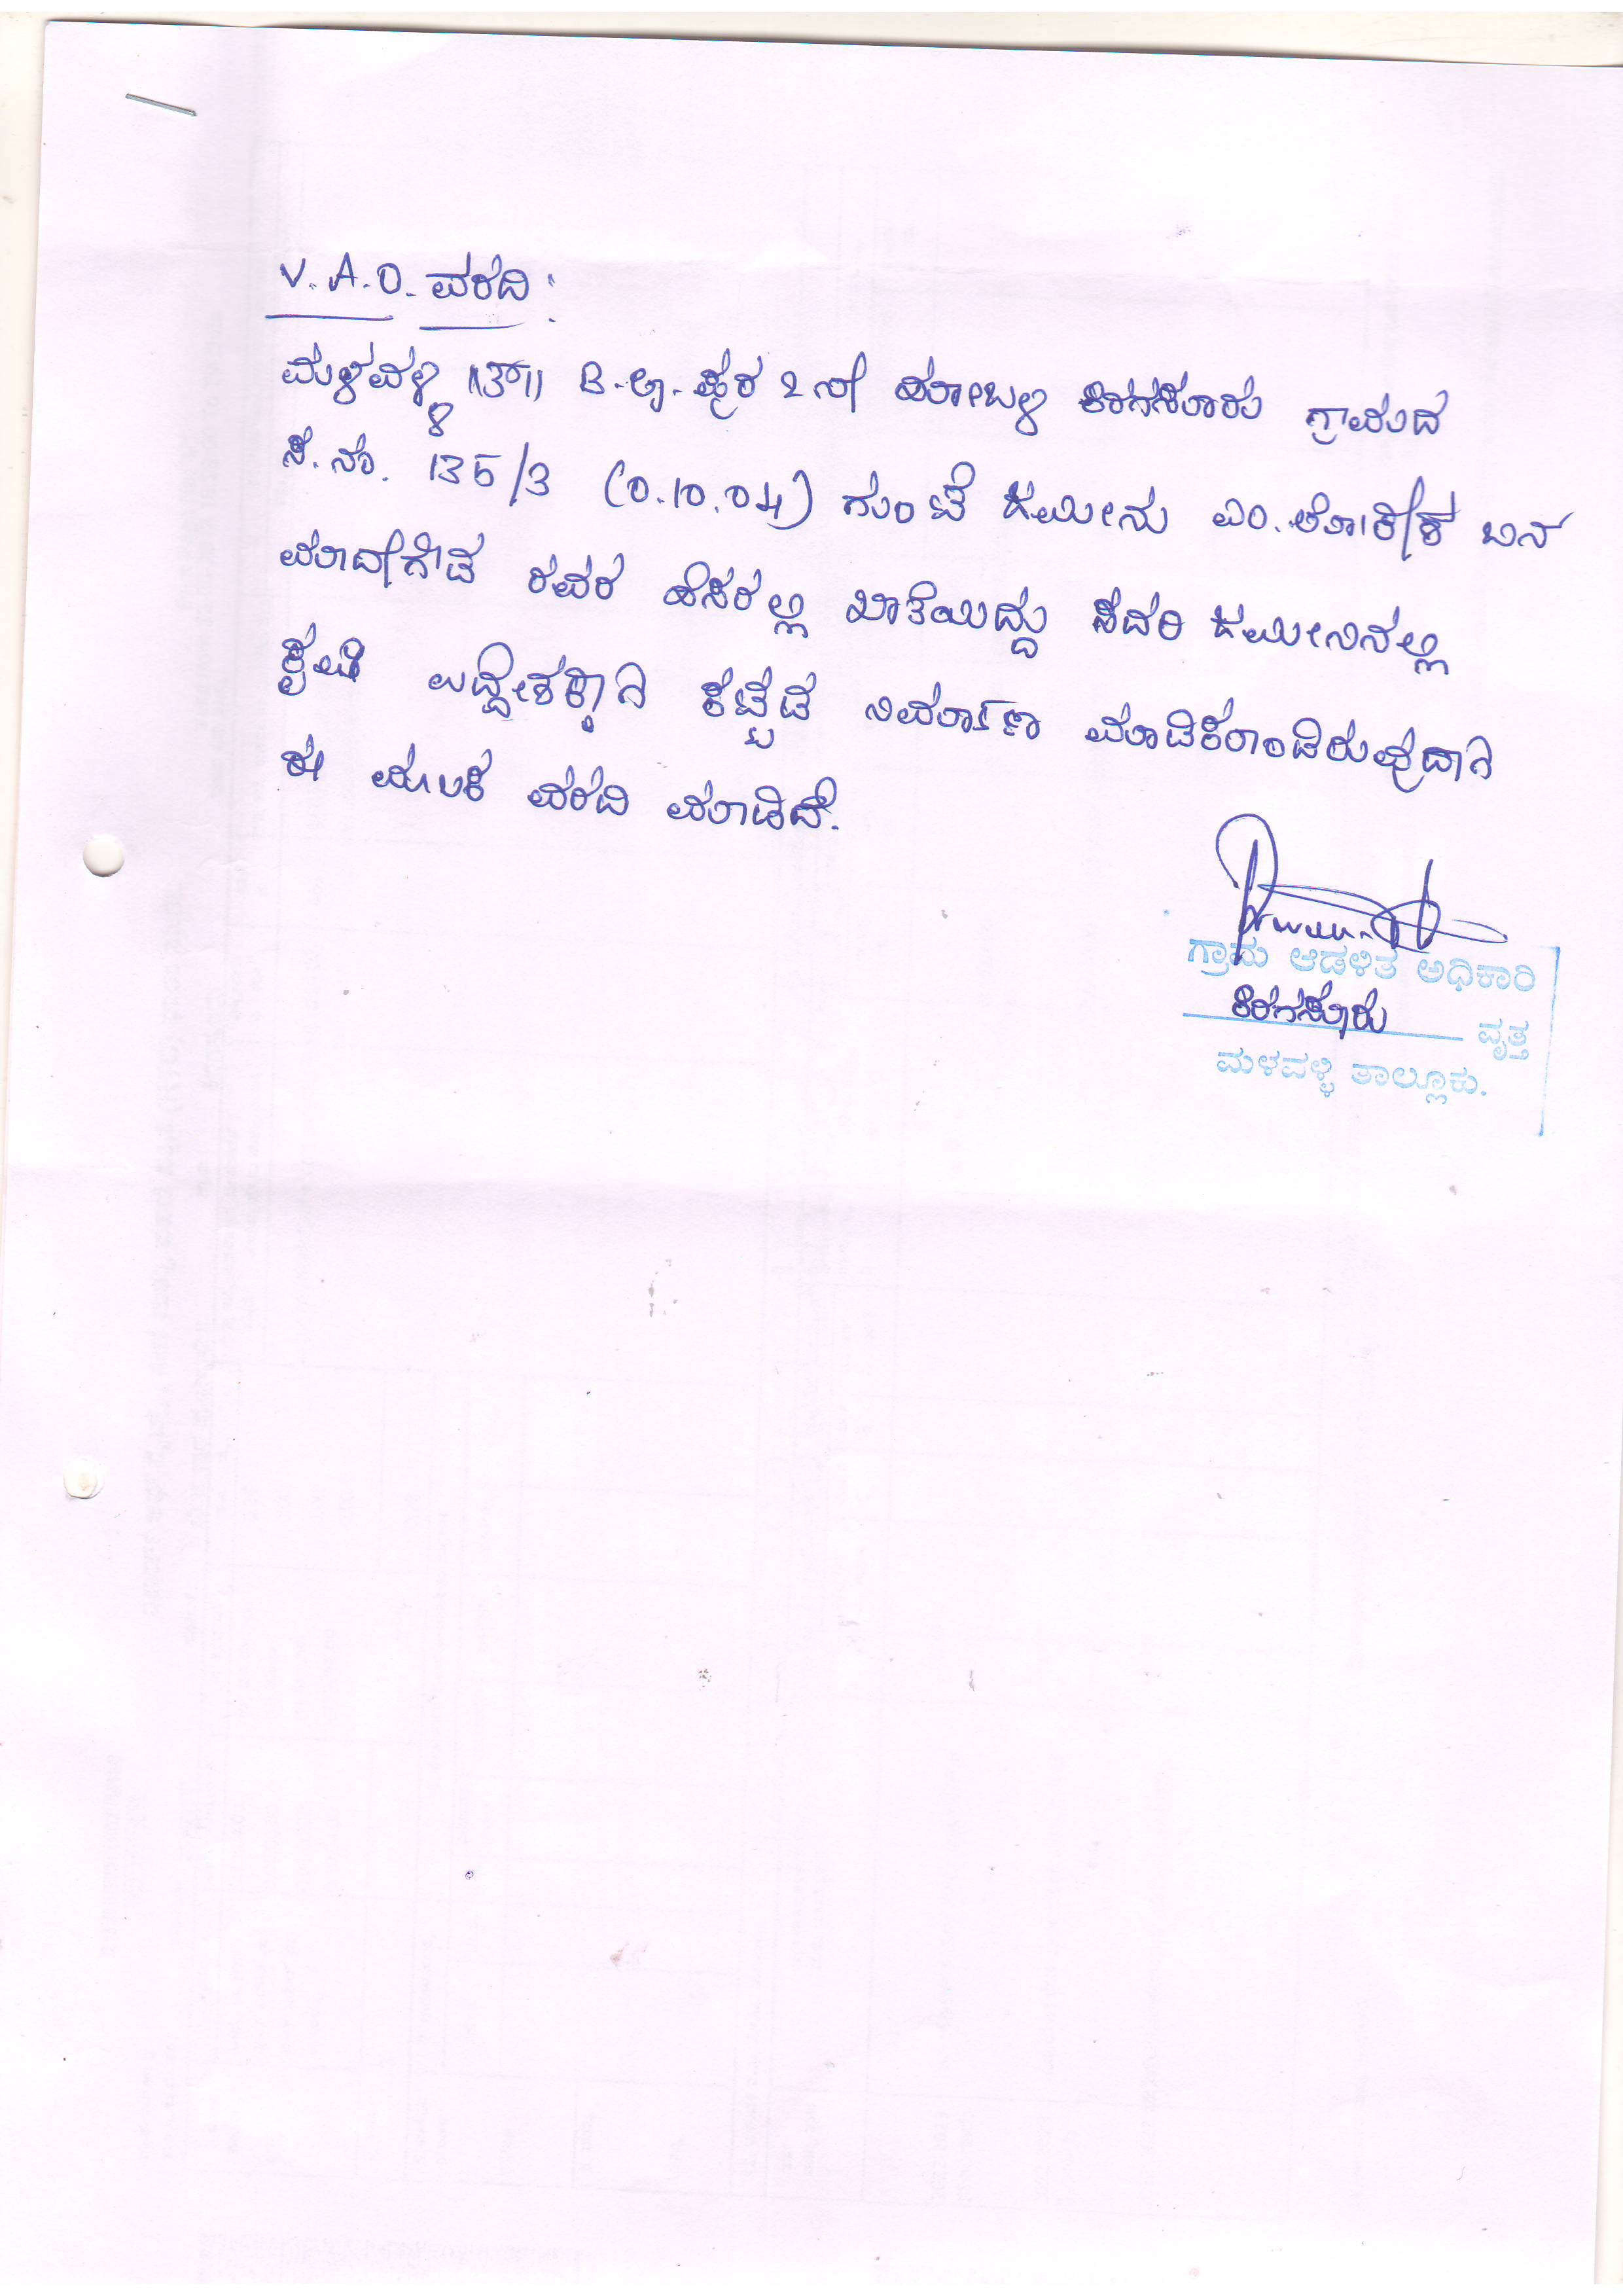 V.A.O. ವರದಿ:
ಮಳವಳ್ಳಿ B.ಜಿ.ಪುರ 2ನೇ ಹೋಬಳಿ ಕಿರಗಸೂರು ಗ್ರಾಮದ
ಸ.ನಂ. 135/3 (0.10.04) ಗುಂಟೆ ಜಮೀನು ಎಂ. ಬಿನ್
ಮಾದೇಗೌಡ ರವರ ಹೆಸರಲ್ಲಿ ಖಾತೆಯಿದ್ದು ಸದರಿ ಜಮೀನಿನಲ್ಲಿ
ಕೃಷಿ ಉದ್ದೇಶಕ್ಕಾಗಿ ಕಟ್ಟಡ ನಿರ್ಮಾಣ ಮಾಡಿಕೊಂಡಿರುವುದಾಗಿ
ಈ ಮೂಲಕ ವರದಿ ಮಾಡಿದೆ.
ಗ್ರಾಮ ಆಡಳಿತ ಅಧಿಕಾರಿ
ಕಿರಗಸೂರು ವೃತ್ತ
ಮಳವಳ್ಳಿ ತಾಲ್ಲೂಕು.